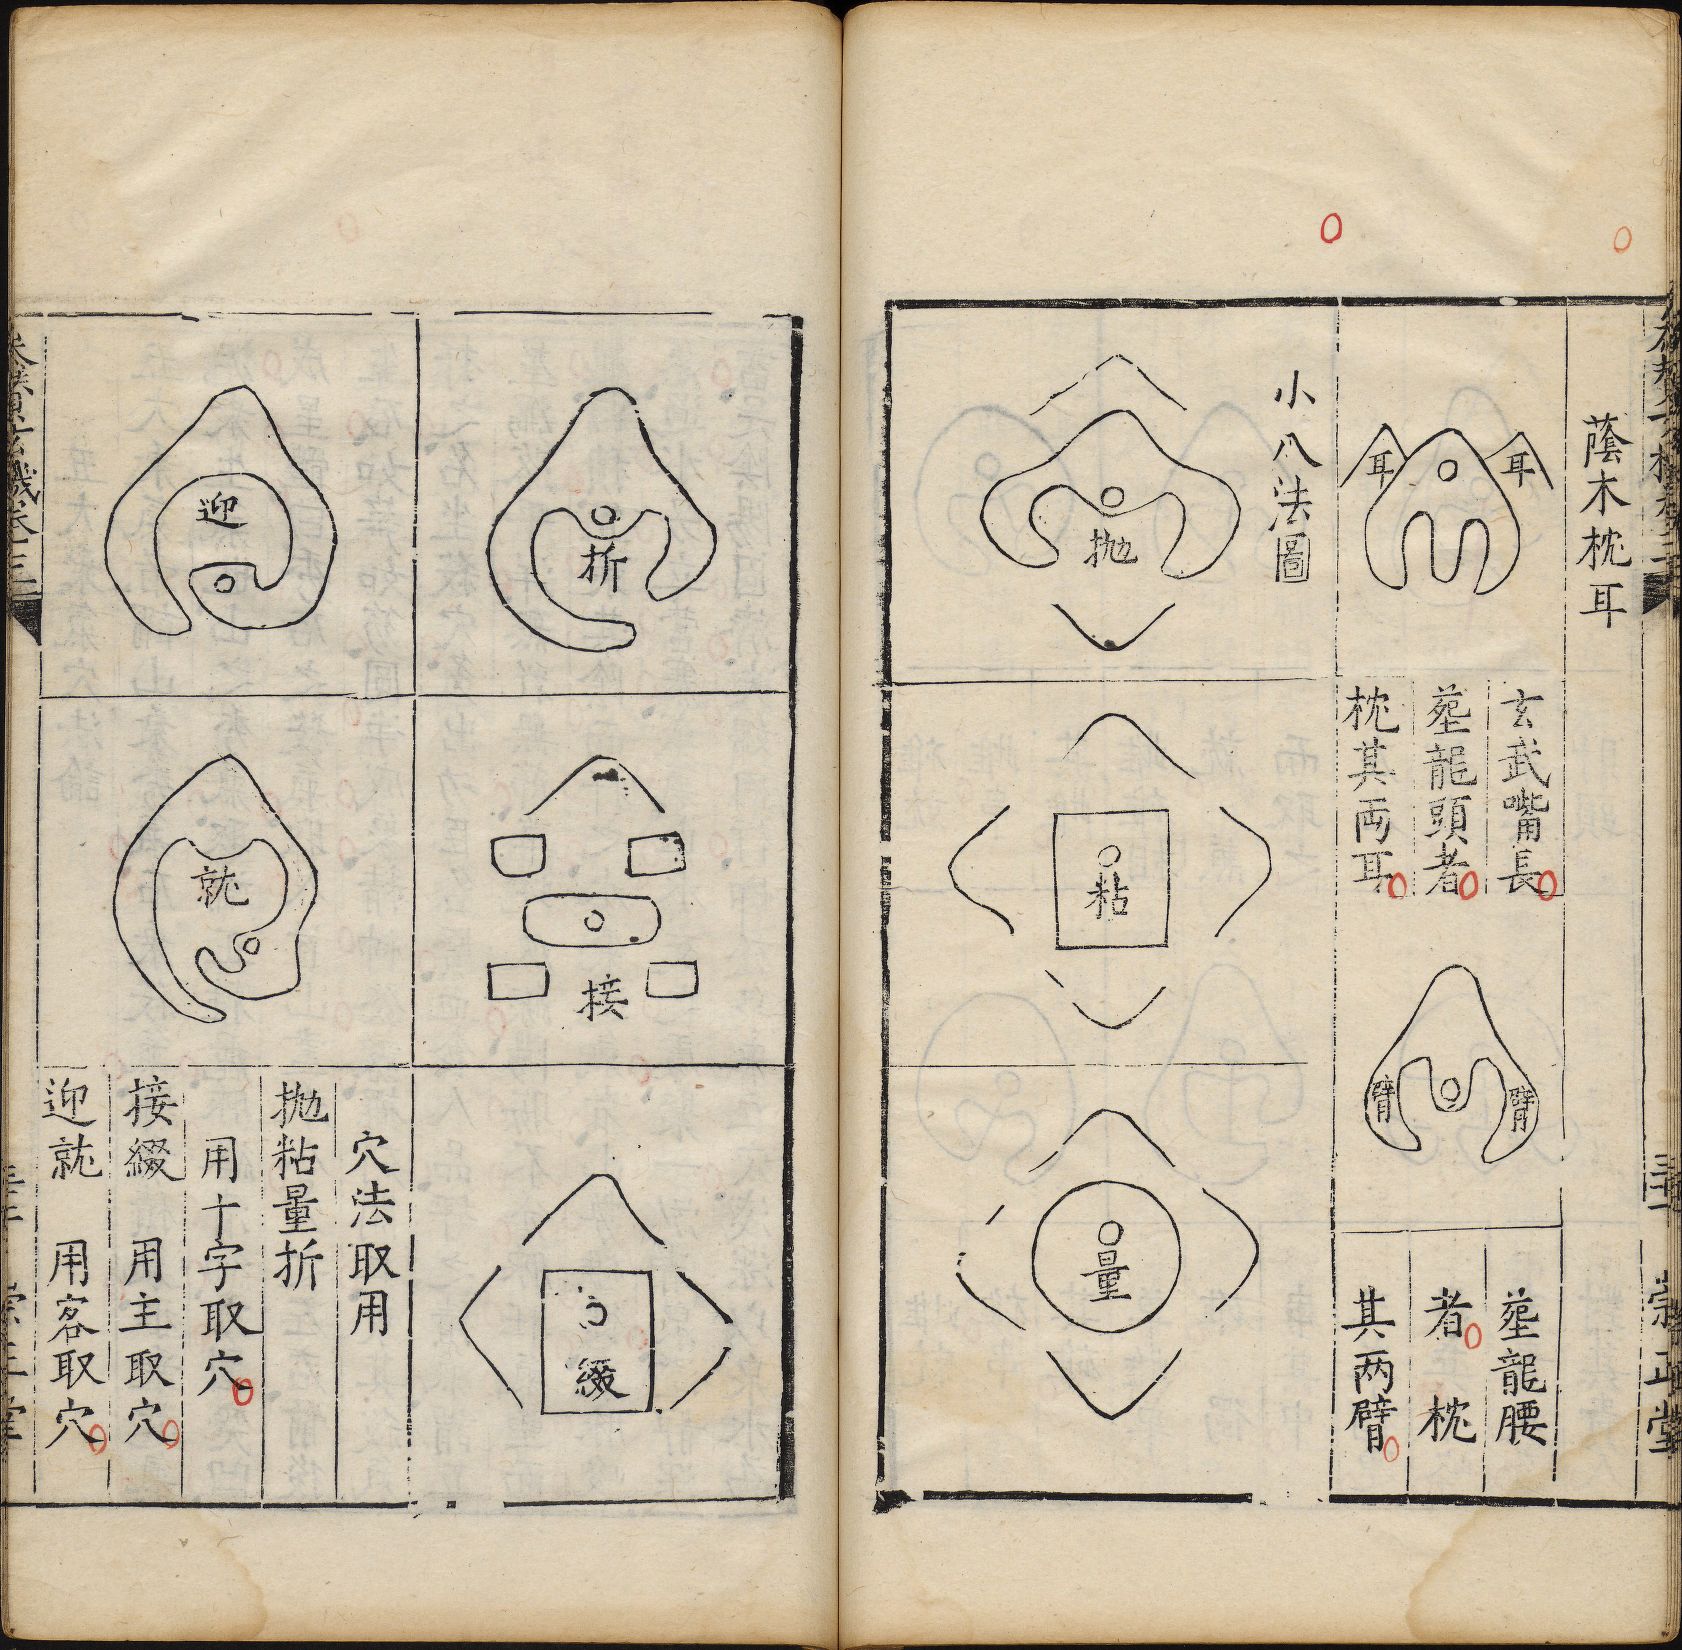 蔭木枕耳
耳
耳
玄武嘴長
塟龍頭者
枕其両耳
臂
臂
塟龍腰
者 枕
其两臂
小八法圖
抛
粘
量
折
接
綴
迎
就
穴法取用
抛粘量折
用十字取穴
接綴 用主取穴
迎就 用客取穴
崇正堂